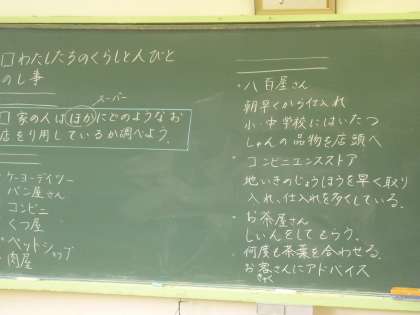 □わたしたちのくらしと人びと
のし事
スーパー
□ 家の人はほかにどのようなお
店をり用しているか調べよう。
・ケーヨーデイツー
・パン屋さん
・コンビニ
・くつ屋
・ペットショップ
・肉屋
・八百屋さん
朝早くから仕入れ
小・中学校にはいたつ
しゅんの品物を店頭へ
・コンビニエンスストア
地いきのじょうほうを早く取り
入れ、仕入れを多くしている。
・お茶屋さん
しいんをしてもらう。
何度も茶葉を合わせる。
お客さんにアドバイス